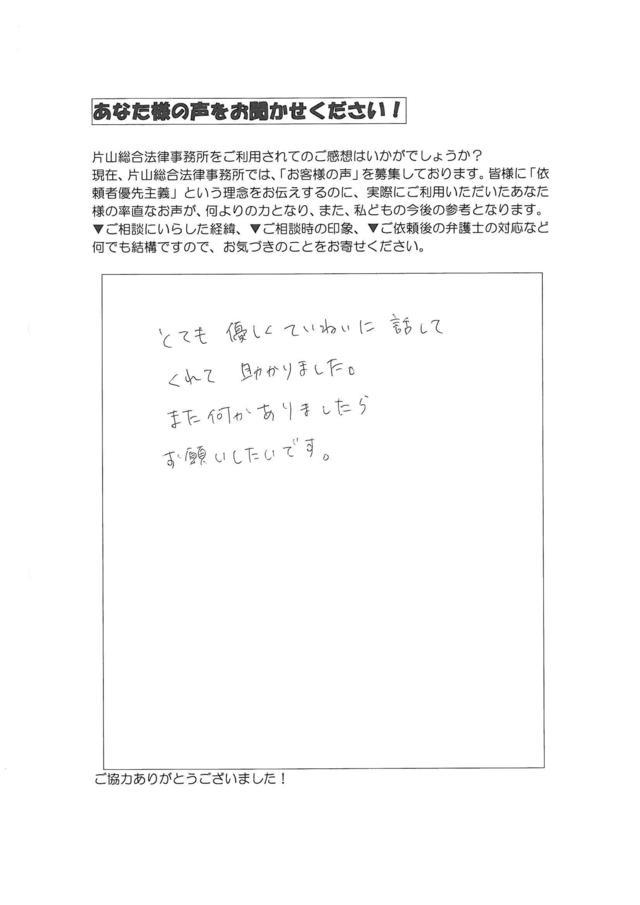 あなた様の声をお聞かせください！
片山総合法律事務所をご利用されてのご感想はいかがでしょうか？
現在、片山総合法律事務所では、「お客様の声」を募集しております。皆様に「依
頼者優先主義」という理念をお伝えするのに、実際にご利用いただいたあなた
様の率直なお声が、何よりの力となり、また、私どもの今後の参考となります。
▼ご相談にいらした経緯、▼ご相談時の印象、▼ご依頼後の弁護士の対応など
何でも結構ですので、お気づきのことをお寄せください。
とても 優しくていねいに 話して
くれて 助かりました。
また何かありましたら
お願いしたいです。
ご協力ありがとうございました！